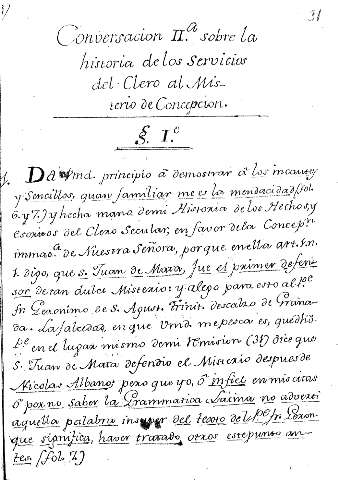 31
Conversacion II.ª sobre la
historia de los Servicios
del Clero al Mis-
terio de Concepcion.
§. I.º
1. Da Vmd. principio à demostrar à los incautos
y Sencillos, quan familiar me es la mendacidad (fol.
6 y 7.) y hecha mano demi Historia de los Hechos, y
escritos del Clero Secular, en favor dela Concepn.
immac.ª de Nuestra Señora, porque enella art. I. n.
1. digo, que S. Juan de Mata fue el primer defen-
sor de tan dulce Misterio: y alego para esto al P.e
Fr. Geronimo de S. Agust. Trinit. descalzo de Grana-
da. La falsedad, en que Vmd. me pesca es, que dho
P.e en el lugar mismo demi Remision (31) dice que
S. Juan de Mata defendio el Misterio despues de
Nicolas Albano; pero que yo, ò infiel en mis citas
ò por no saber la Grammatica Latina no adverti
aquella palabra insuper del texto del P.e Fr. Geron.
que significa, haver tratado otros este punto an-
tes (fol. 7.)